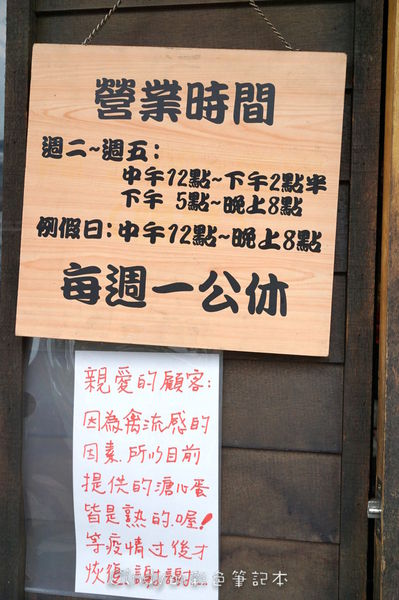 營業時間
週二~週五:
中午12點~下午2點半
下午 5點~晚上8點
例假日:中午12點~晚上8點
每週一公休
親愛的顧客:
因為禽流感的
因素.所以目前
提供的溏心蛋
皆是熟的.喔!
等疫情过後才
恢復.謝謝...
色筆記本